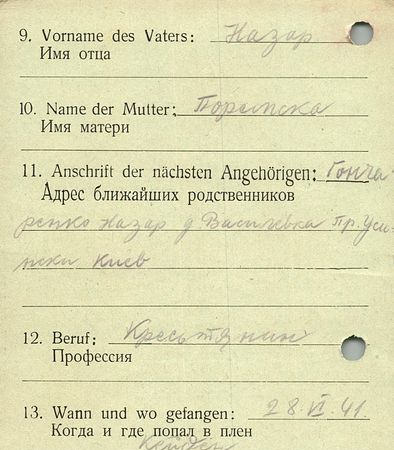 9. Vorname des Vaters: Назар
Имя отца
10. Name der Mutter:
Имя матери
11. Anschrift der nächsten Angehörigen: Гонча-
Адрес ближайших родственников
ренко Назар д Василевка
Киев
12. Beruf: Крестьянин
Профессия
13. Wann und wo gefangen: 28.VI.41.
Когда и где попал в плен